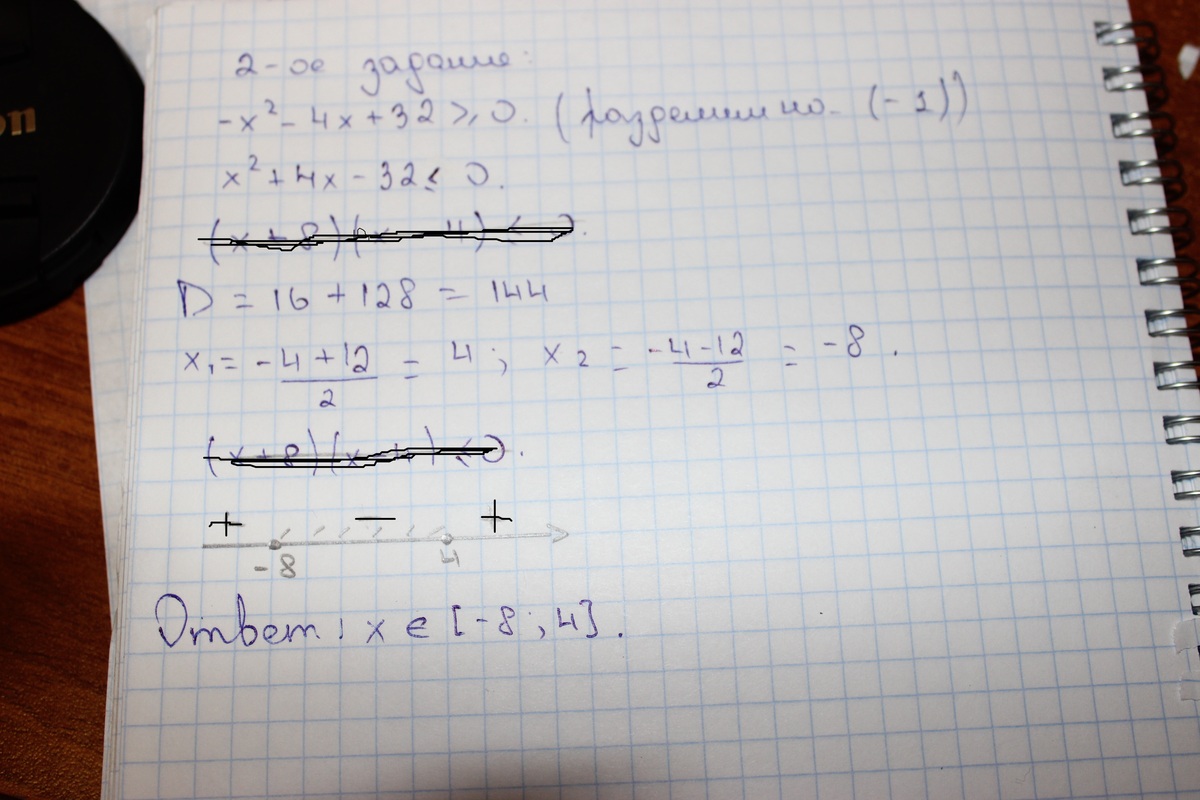 on
2-ое задание:
-x² - 4x + 32 ≥ 0. (разделим на (-1))
x² + 4x - 32 ≤ 0.
D = 16 + 128 = 144
x₁ = -4+12/2 = 4; x₂ = -4-12/2 = -8.
+ − +
-8 4
Ответ: x ∈ [-8; 4].